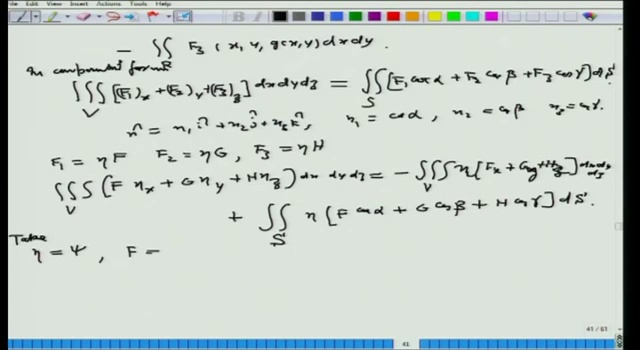 File Edit View Insert Actions Tools Help
− ∬_R F₃ (x, y, g(x,y)) dx dy.
In component form
∭_V [(F₁)_x + (F₂)_y + (F₃)_z] dx dy dz = ∬_S [F₁ cos α + F₂ cos β + F₃ cos γ] dS
n̂ = n₁ î + n₂ ĵ + n₃ k̂, n₁ = cos α, n₂ = cos β n₃ = cos γ.
F₁ = η F F₂ = η G, F₃ = η H
∭_V (F η_x + G η_y + H η_z) dx dy dz = − ∭_V η [F_x + G_y + H_z] dx dy dz
+ ∬_S η [F cos α + G cos β + H cos γ] dS.
Take
η = ψ, F =
41 / 61
41